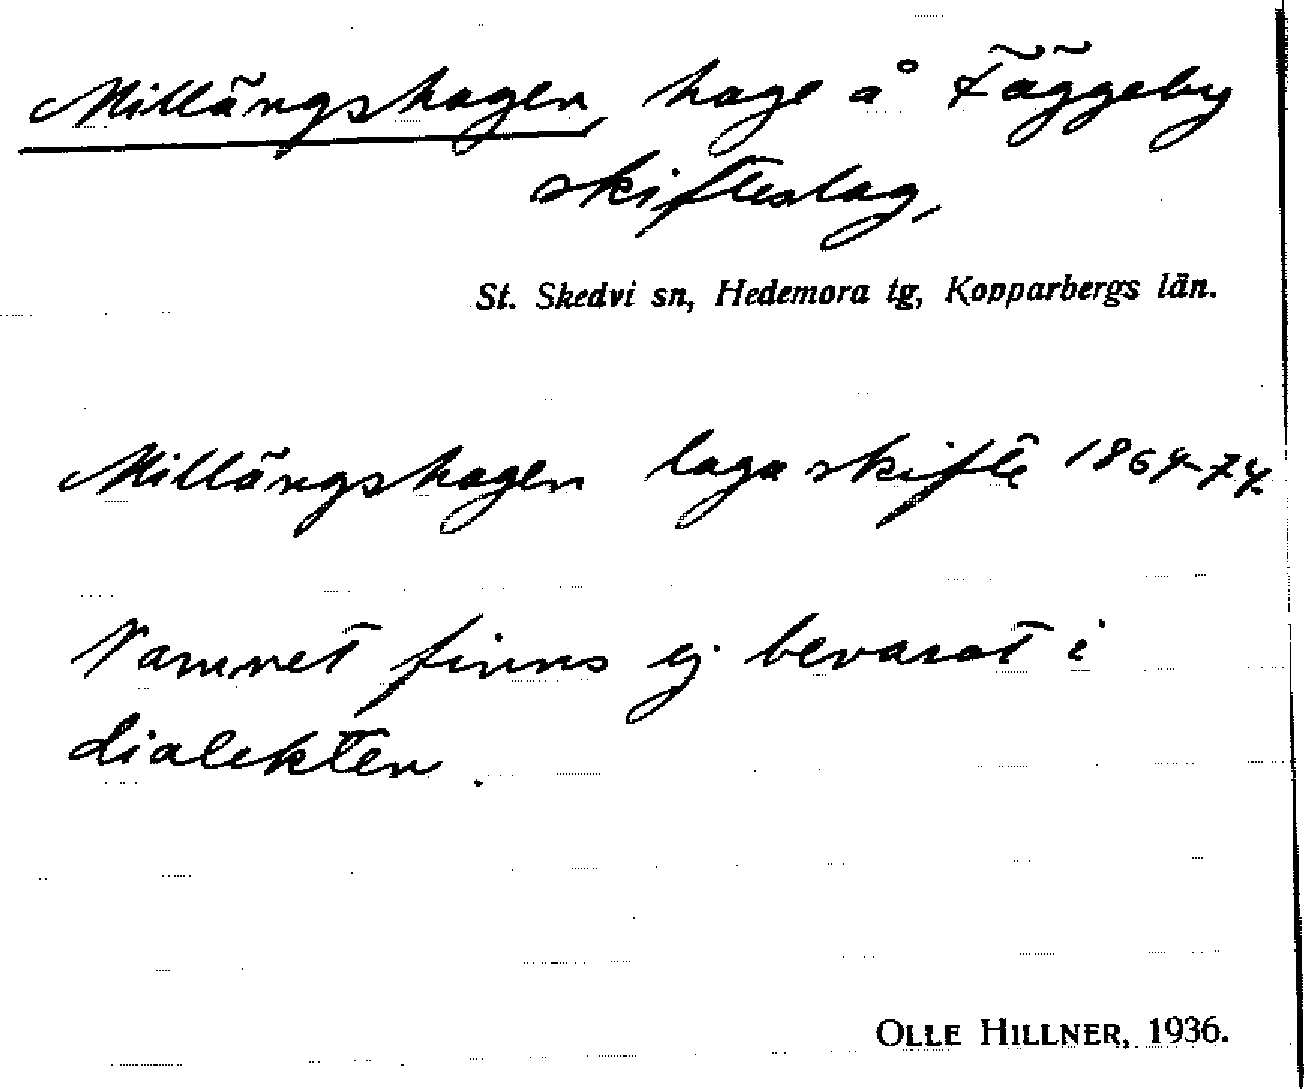 Millängshagen, hage å Fäggeby
skifteslag,
St. Skedvi sn, Hedemora tg, Kopparbergs län.
Millängshagen laga skifte 1864-74.
Namnet finns ej bevarat i
dialekten.
OLLE HILLNER, 1936.